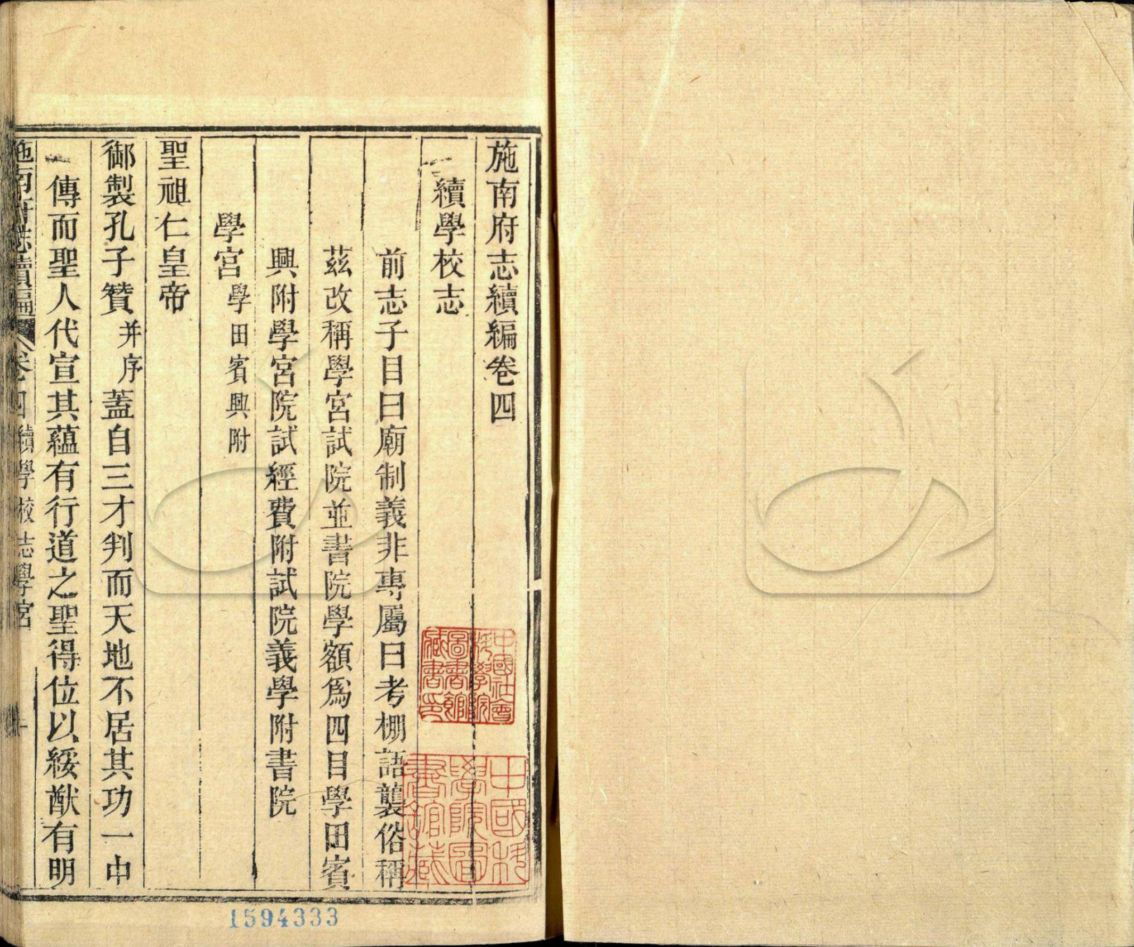 施南府志續編卷四
續學校志
前志子目曰廟制義非專屬曰考棚語襲俗稱
茲改稱學宮試院並書院學額爲四目學田賓
興附學宮院試經費附試院義學附書院
學宮學田賓興附
聖祖仁皇帝
御製孔子贊并序蓋自三才判而天地不居其功一中
傳而聖人代宣其蘊有行道之聖得位以綏猷有明
施南府志續編 卷四 續學校志學宮 一
中國社會
科學院
圖書館
藏書印
中國科
學院圖
書館藏
1594333